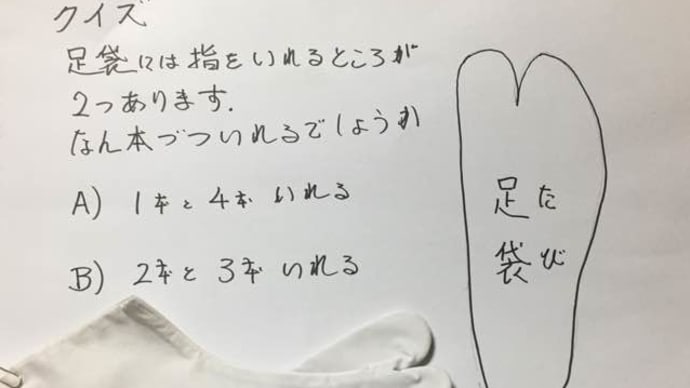 クイズ
足袋には指をいれるところが
2つあります.
なん本づついれるでしょうか
A) 1本と4本 いれる
B) 2本と3本 いれる
足袋
たび